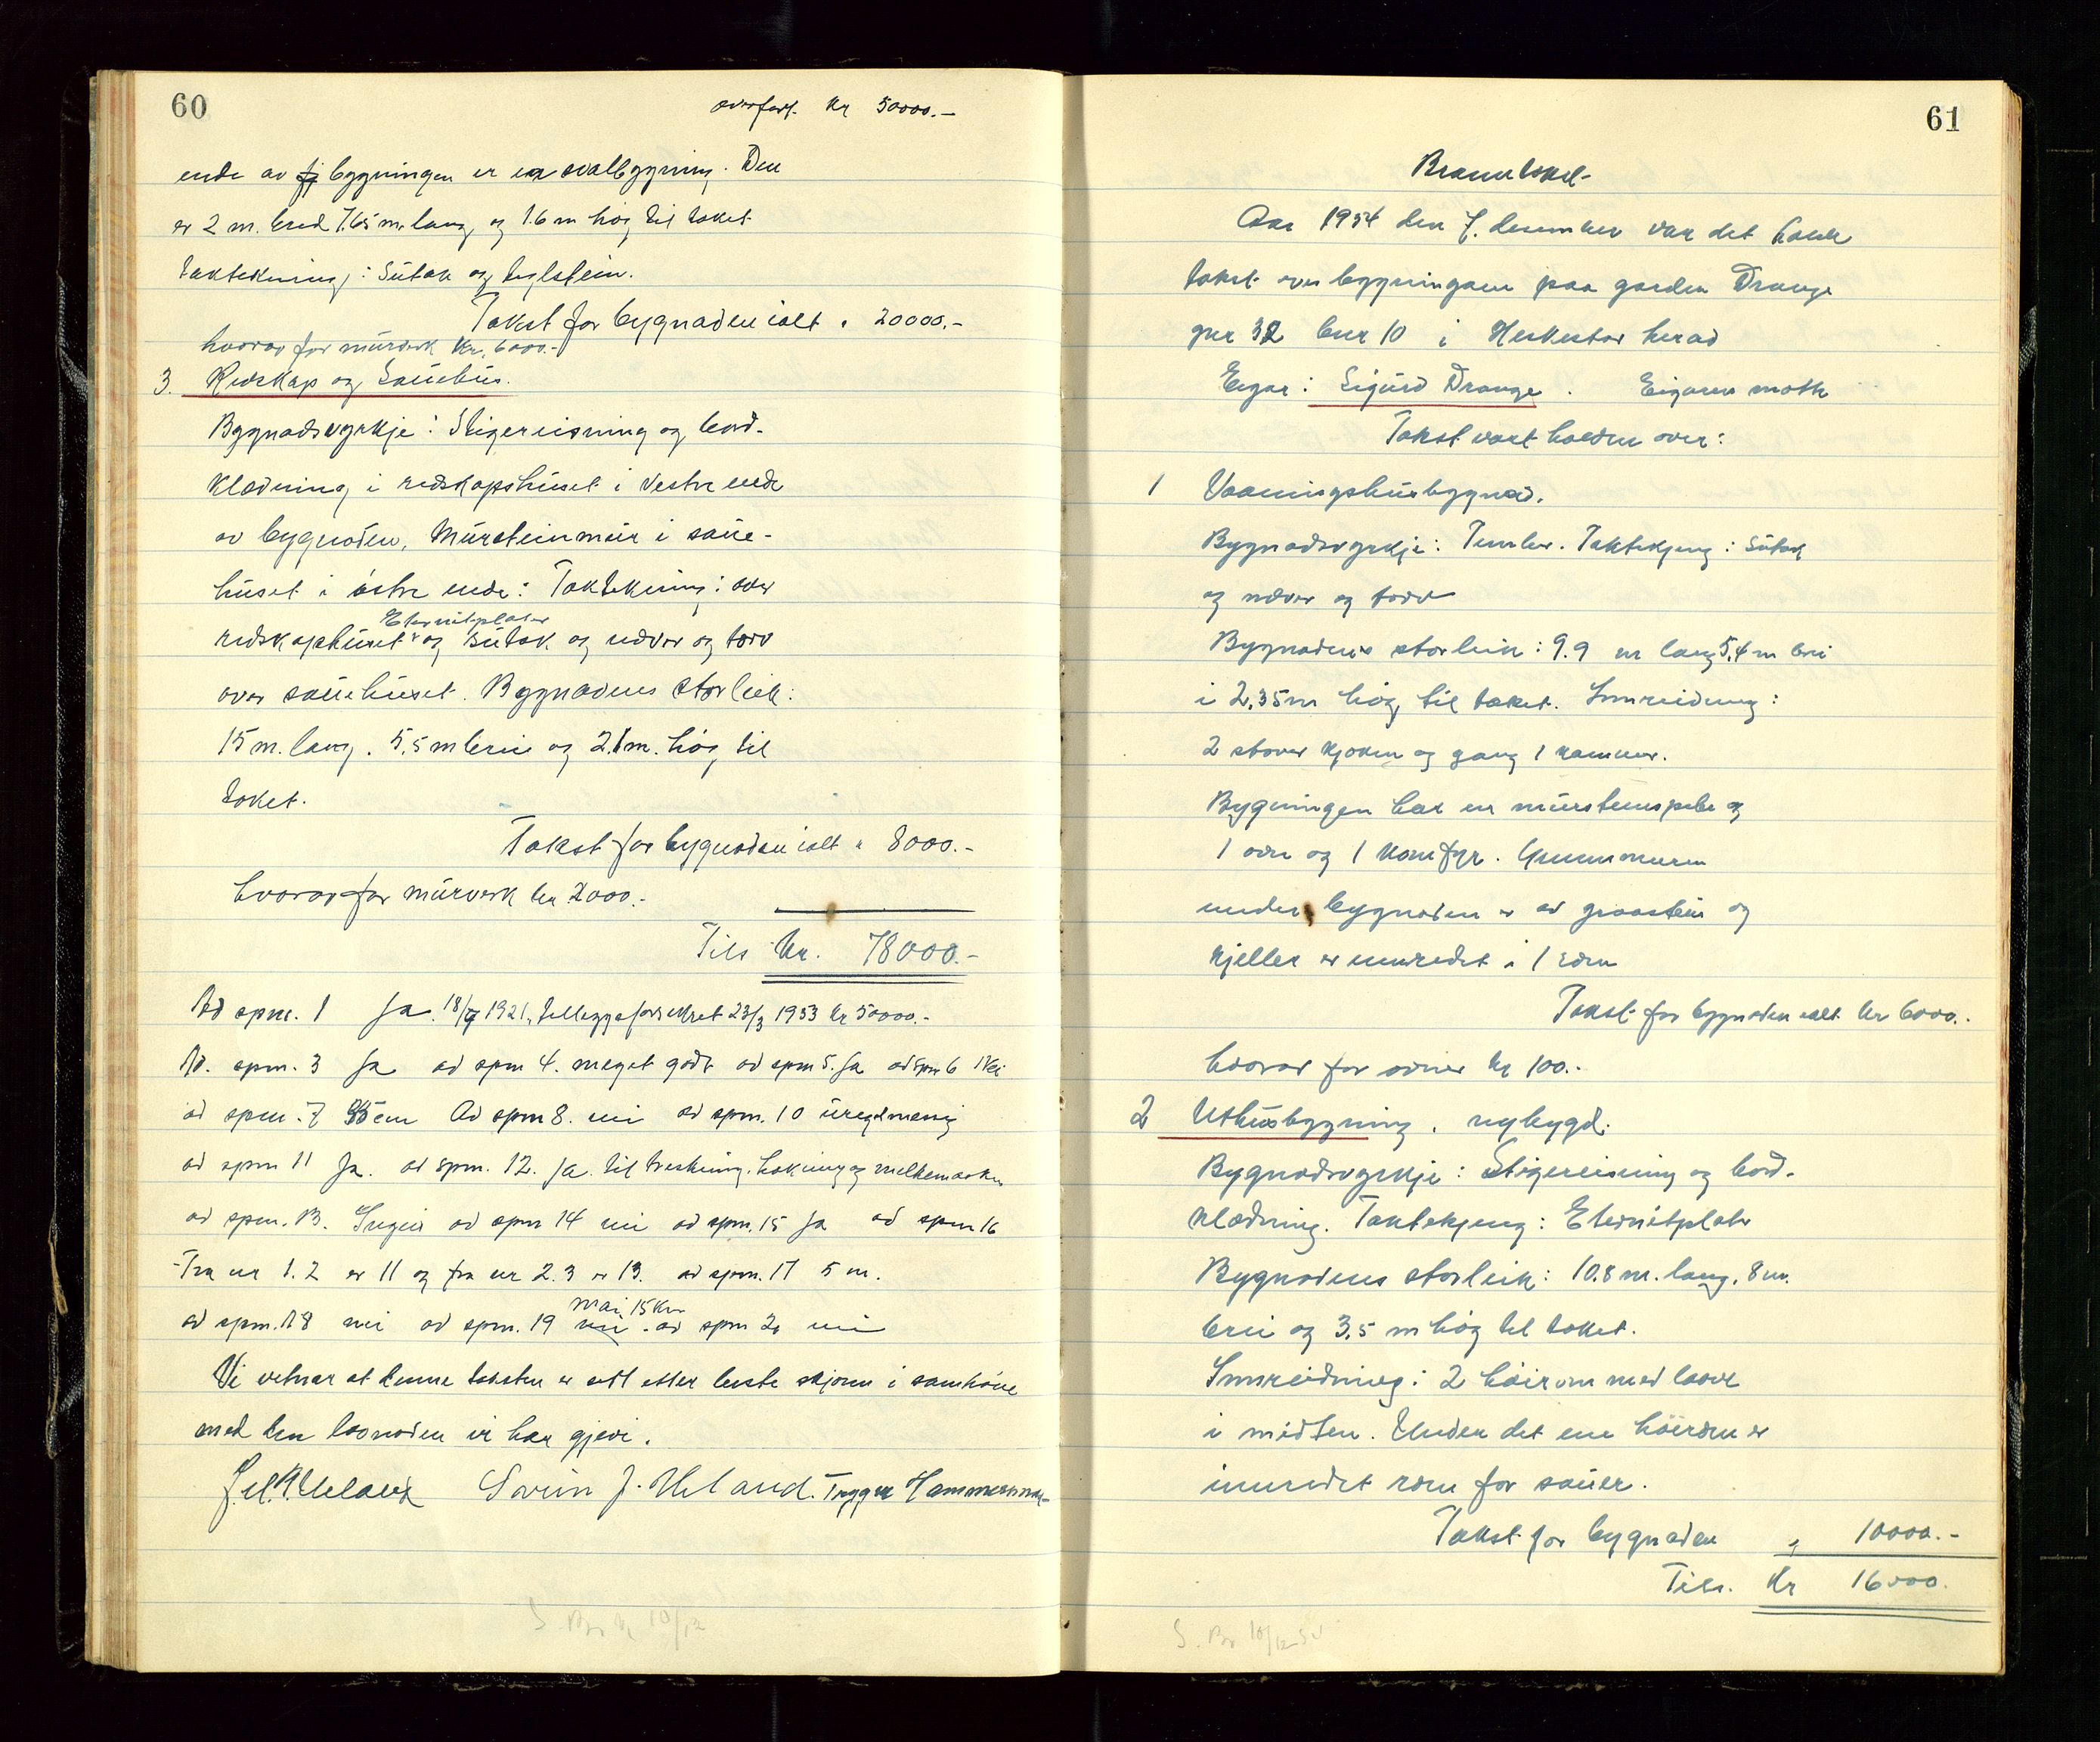 60
overført. Kr 50000.-
ende av bygningen er en svalbygning. Den
er 2 m. bred 7.65 m. lang og 1.6 m høg til taket
taktekning: Sutak og teglstein.
Takst for bygnaden ialt " 20000.-
hvorav for murverk Kr. 6000.-
3. Reidskap og Sauehus.
Bygnadsvyrkje: Stigereisning og bord-
klædning i redskapshuset i vestre ende
av bygnaden, Mursteinmur i saue-
huset i østre ende: Taktekning: over
Eternitplater
redskapshuset og sutak og nævor og torv
over sauehuset. Bygnadens storleik:
15 m. lang. 5,5 m brei og 2.1 m. høg til
taket.
Takst for bygnaden ialt " 8000.-
hvorav for murverk kr 2000.-
Tils Kr. 78000.-
Ad spm. 1 Ja. 1921, tilleggsforsikret 23/3 1953 kr 50000.-
Ad. spm. 3 Ja ad spm 4. meget godt ad spm 5. Ja ad spm 6 Nei
ad spm. 7 cm Ad spm 8. nei ad spm. 10 uregelmessig
ad spm 11 Ja. ad spm. 12. Ja til treskning, hakning og melkemaskin
ad spm. 13. Ingen ad spm 14 nei ad spm. 15 Ja ad spm 16
Fra nr 1. 2 er 11 og fra nr 2. 3 er 13. ad spm. 17 5 m.
15 Km
ad spm. 18 nei ad spm. 19 nei. ad spm 20 nei
Vi vitnar at denne taksten er sett etter beste skjønn i samhøve
med den lovnaden vi har gjevi.
Sørein J. Ueland. Trygve Hammersmark
S. 10/12
61
Branntakst-
Aar 1954 den 7. desember var det halde
takst over bygningane paa garden Drange
gnr 32 bnr 10 i Heskestad herad
Eigar: Sigurd Drange. Eigaren møtte
Takst vart halden over:
1 Vaaningshusbygnad.
Bygnadsvyrkje: Tømber. Taktekjeng: Sutak
og næver og torv
Bygnadens storleik: 9.9 m lang 5,4 m brei
i 2,35 m høg til taket. Innreidning:
2 stover kjøken og gang 1 kammer.
Bygningen har en murstenspipe og
1 ovn og 1 komfyr. Grunnmuren
under bygnaden er av graastein og
kjeller er innredet i 1 rom
Takst for bygnaden ialt kr 6000.-
hvorav for ovner kr 100.-
2 Uthusbygning. nybygd.
Bygnadsvyrkje: Stigereisning og bord-
klædning. Taktekjeng: Eternitplater
Bygnadens storleik: 10.8 m. lang, 8 m.
brei og 3,5 m høg til taket.
Innreidning: 2 høirom med laave
i midten. Under det ene høirom er
innredet rom for sauer.
Takst for bygnaden " 10000.-
Tils. Kr 16000.
S. 10/12-54